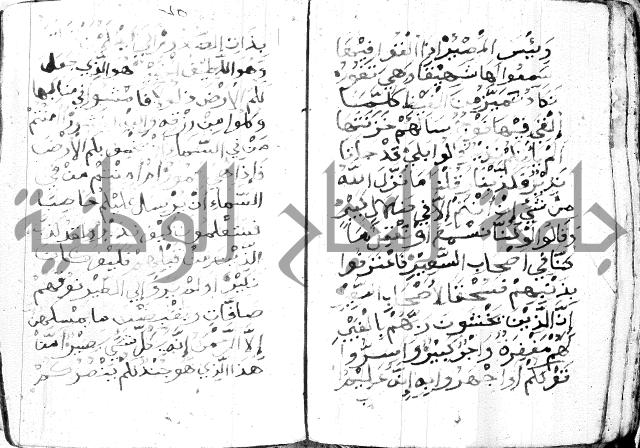 وبئس المصير اذا القوا فيها
سمعوا لها شهيقا وهي تفور
تكاد تميز من الغيظ كلما
القي فيها فوج سالهم خزنتها
الم ياتكم نذير قالوا بلى قد جاءنا
نذير فكذبنا وقلنا ما نزل الله
من شيء ان انتم الا في ضلال كبير
وقالوا لو كنا نسمع او نعقل ما
كنا في اصحاب السعير فاعترفوا
بذنبهم فسحقا لاصحاب السعير
ان الذين يخشون ربهم بالغيب
لهم مغفرة واجر كبير واسروا
قولكم او اجهروا به انه عليم
بذات الصدور الا يعلم
وهو اللطيف الخبير هو الذي جعل
لكم الارض ذلولا فامشوا في مناكبها
وكلوا من رزقه واليه النشور اامنتم
من في السماء ان يخسف بكم الارض
فاذا هي تمور ام امنتم من في
السماء ان يرسل عليكم حاصبا
فستعلمون كيف نذير ولقد كذب
الذين من قبلهم فكيف كان
نكير اولم يروا الى الطير فوقهم
صافات ويقبضن ما يمسكهن
الا الرحمن انه بكل شيء بصير امن
هذا الذي هو جند لكم ينصركم
جامعة النجاح الوطنية